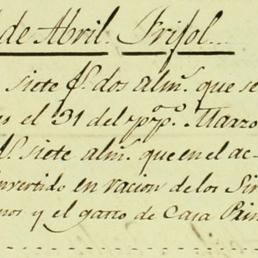 de Abril. Frisol
siete f.s dos alm.s que se
el 31 del pp.do Marzo
siete alm.s que en el ac-
nvertido en racion de los Sir
nos y el gasto de Casa Prin